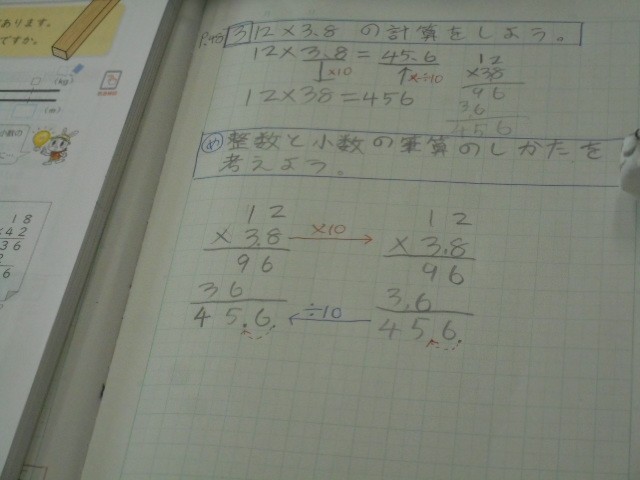 P.48 3 12×3.8 の計算をしよう。
12×3.8=45.6
×10
÷10
12×38=456
12
×38
96
3.6
456
め 整数と小数の筆算のしかたを
考えよう。
12
×3.8
96
36
45.6.
×10
÷10
12
×3.8
96
3.6
45.6.
あります。
ですか。
(kg)
(m)
小数の
18
×42
36